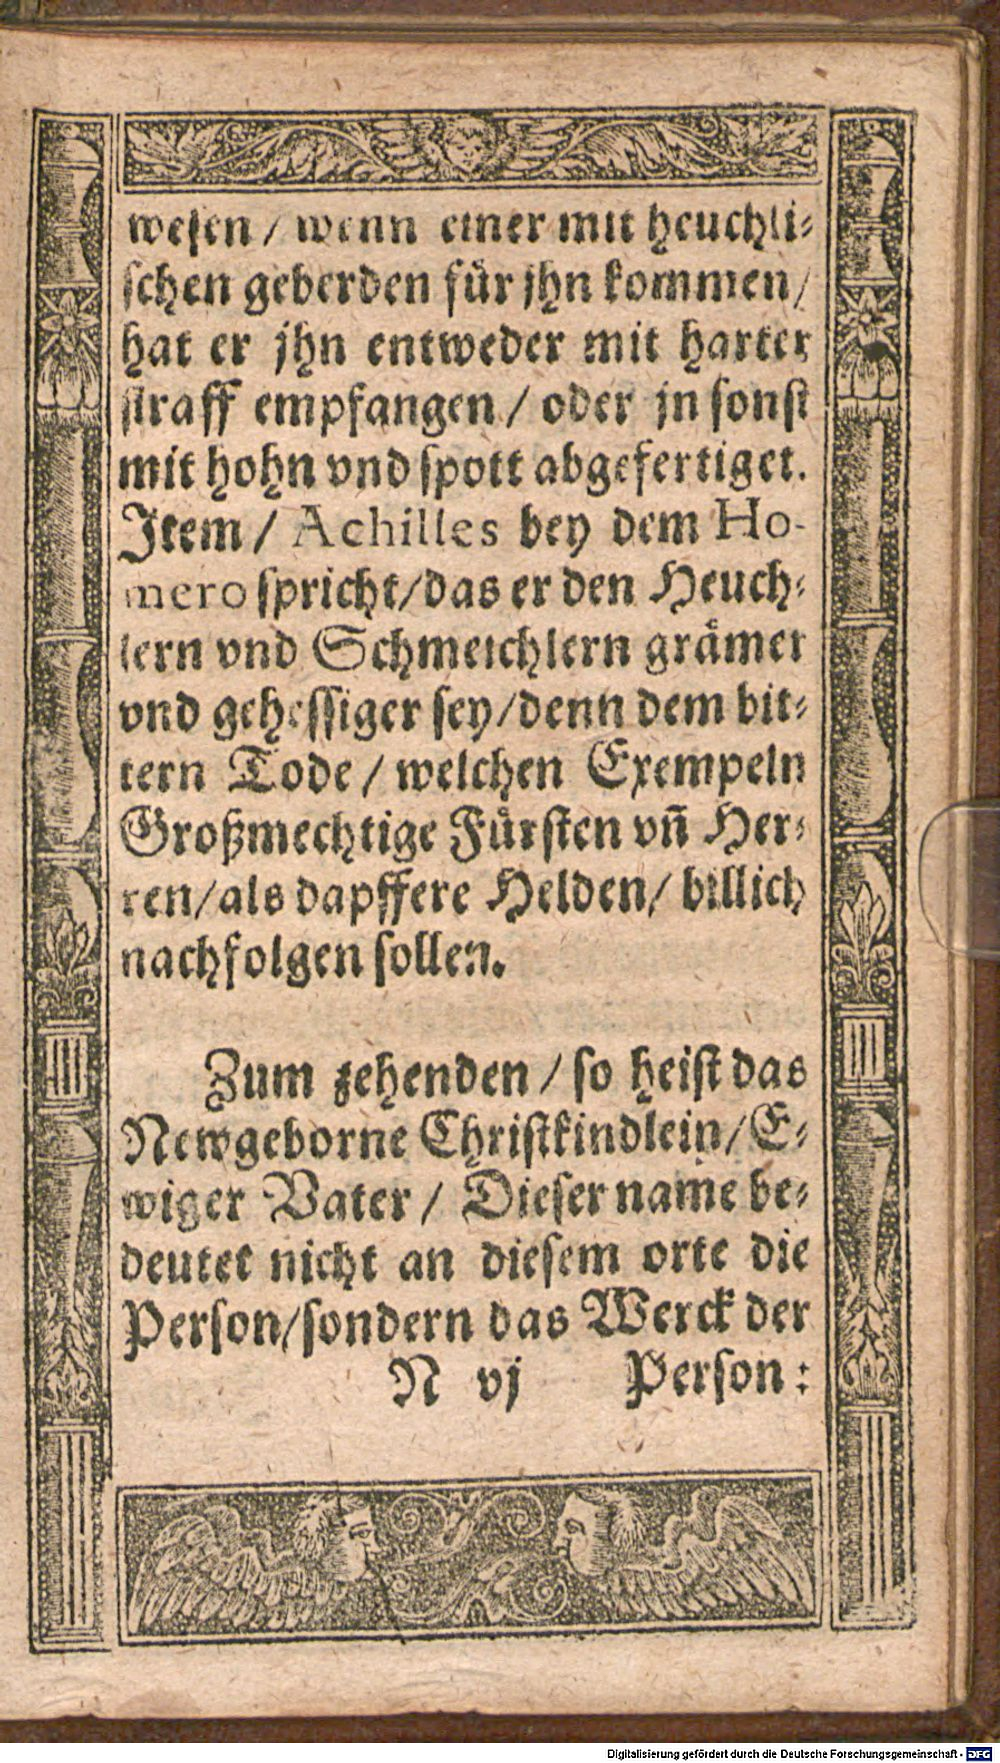 wesen / wenn einer mit heuchli⸗
schen geberden für jhn kommen /
hat er jhn entweder mit harter
straff empfangen / oder jn sonst
mit hohn vnd spott abgefertiget.
Jtem / Achilles bey dem Ho-
mero spricht / das er den Heuch⸗
lern vnd Schmeichlern grämer
vnd gehessiger sey / denn dem bit⸗
tern Tode / welchen Exempeln
Großmechtige Fürsten vñ Her⸗
ren / als dapffere Helden / billich
nachfolgen sollen.
Zum zehenden / so heist das
Newgeborne Christkindlein / E⸗
wiger Vater / Dieser name be⸗
deutet nicht an diesem orte die
Person / sondern das Werck der
N vj Person:
Digitalisierung gefördert durch die Deutsche Forschungsgemeinschaft - DFG